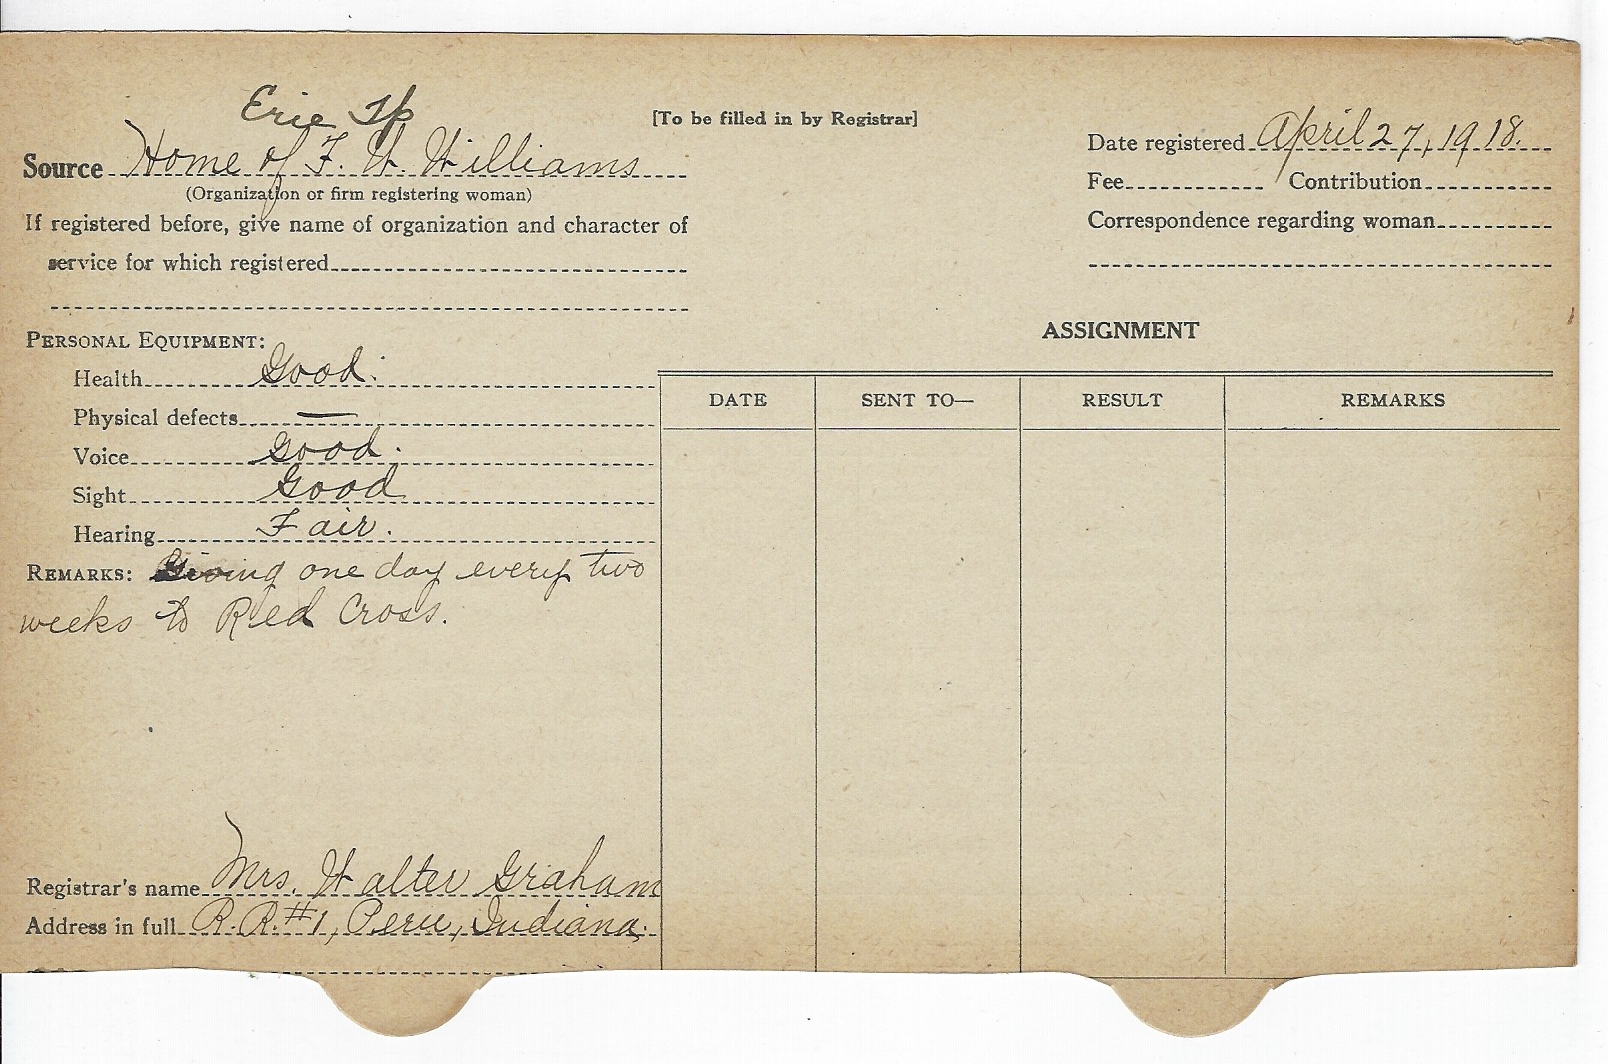 Erie Tp
[To be filled in by Registrar]
Source Home of F. W. Williams
(Organization or firm registering woman)
If registered before, give name of organization and character of
service for which registered
Date registered April 27, 1918.
Fee Contribution
Correspondence regarding woman
PERSONAL EQUIPMENT:
Health Good.
Physical defects —
Voice Good.
Sight Good
Hearing Fair.
REMARKS: Giving one day every two
weeks to Red Cross.
Registrar's name Mrs. Walter Graham
Address in full R.R.#1, Peru, Indiana.
ASSIGNMENT
DATE SENT TO— RESULT REMARKS